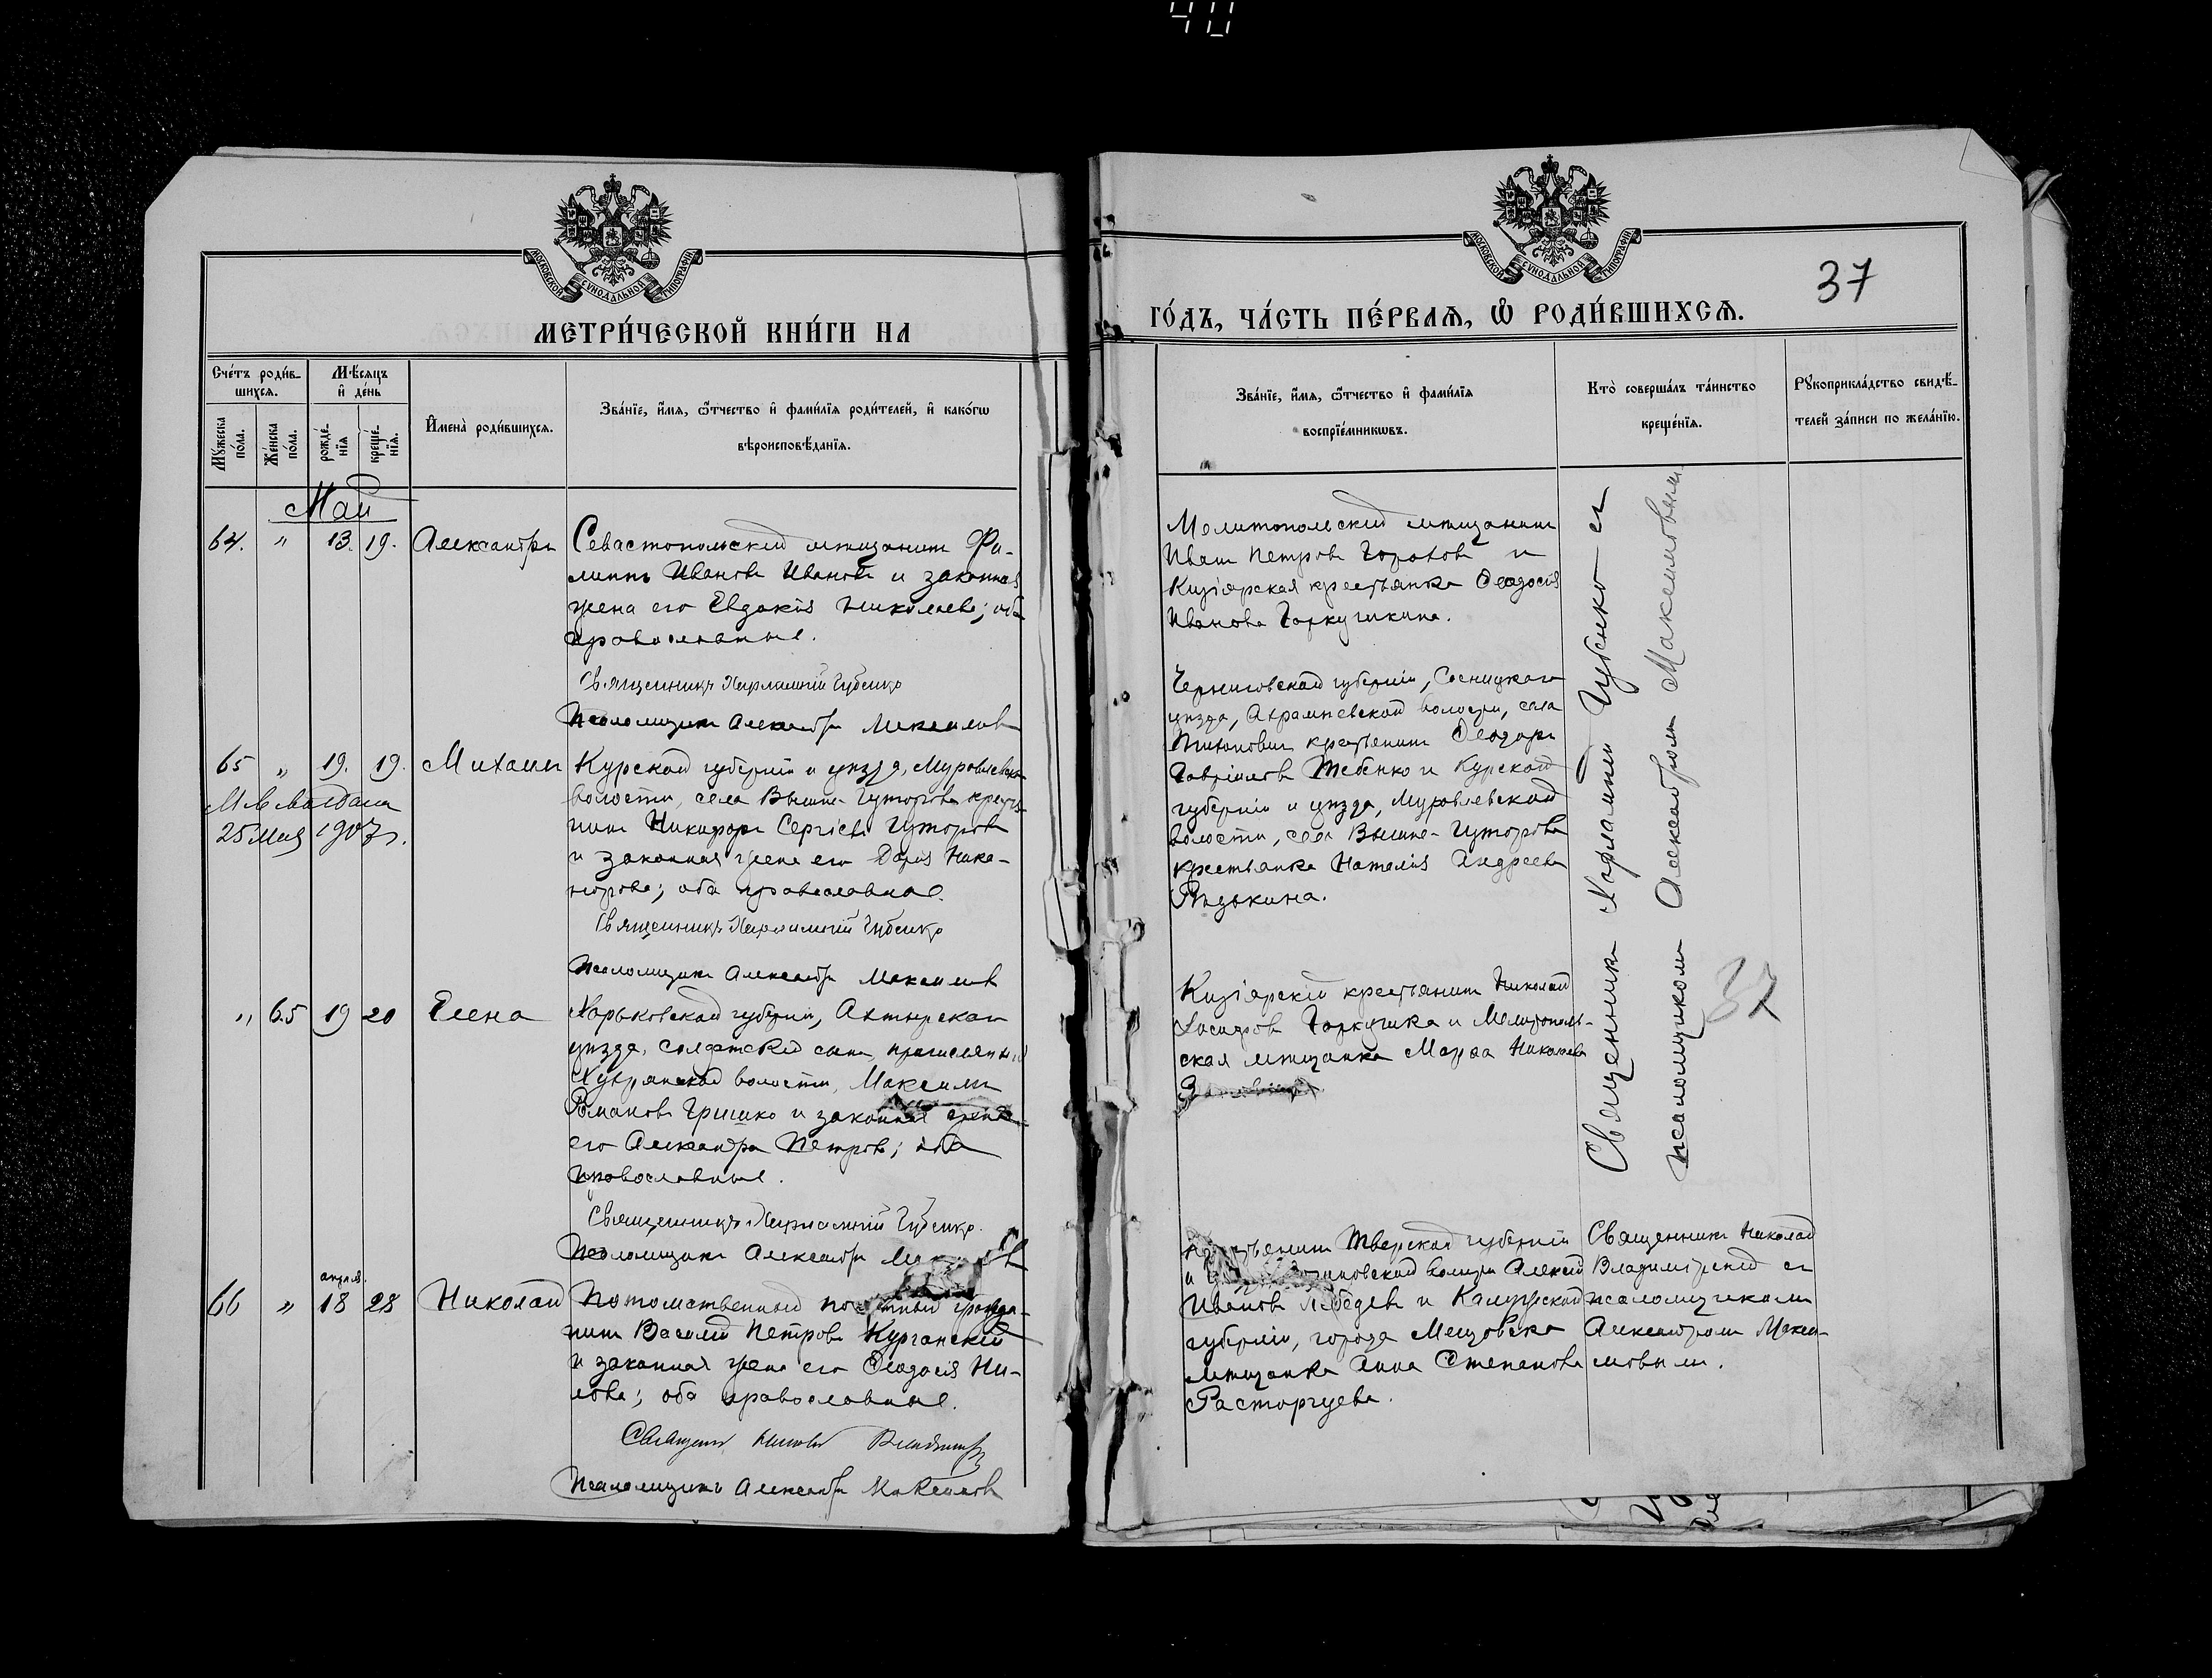 40
МОСКОВСКОЙ СѴНОДАЛЬНОЙ ТИПОГРАФІИ
МЕТРИ́ЧЕСКОЙ КНИ́ГИ НА
Сче́тъ роди́в-
шихся.
Мѣ́сяцъ
и҆ де́нь
Мꙋ́жеска
по́ла.
Же́нска
по́ла.
рожде́-
нїя
креще́-
нїя.
И҆мена̀ роди́вшихся.
Зва́нїе, и҆́мя, ѻ҆́тчество и҆ фами́лїя роди́телей, и҆ како́гѡ
вѣроисповѣ́данїя.
Май
64. " 13. 19. Александръ
Севастопольскій мѣщанинъ Фи-
липпъ Ивановъ Ивановъ и законная
жена его Евдокія Николаева; оба
православные.
Священникъ Харлампій Губенко
Псаломщикъ Александръ Максимов
65 " 19. 19. Михаилъ
М. в. выдана
25 Мая 1907 г.
Курской губерніи и уѣзда, Муровлевской
волости, села Вышне-Гуторова крестья-
нинъ Никифоръ Сергіевъ Гуторовъ
и законная жена его Дарія Ника-
норова; оба православные.
Священникъ Харлампій Губенко
Псаломщикъ Александръ Максимов
" 65 19 20 Елена
Харьковской губерніи, Ахтырскаго
уѣзда, солдатскій сынъ, причисленный
волости, Максимъ
Романовъ Гришко и законная жена
его Александра Петрова; оба
православные.
Священникъ Харлампій Губенко.
Псаломщикъ Александръ
апрѣля.
66 " 18 28 Николай
Потомственный почетный гражда-
нинъ Василій Петровъ Курганскій
и законная жена его Ѳеодосія Ни-
лова; оба православные.
Священникъ Николай
Псаломщикъ Александръ Максимов
МОСКОВСКОЙ СѴНОДАЛЬНОЙ ТИПОГРАФІИ
37
ГО́ДЪ, ЧА́СТЬ ПЕ́РВАЯ, Ѡ҆ РОДИ́ВШИХСЯ.
Зва́нїе, и҆́мя, ѻ҆́тчество и҆ фами́лїя
воспрїе́мникѡвъ.
Кто̀ соверша́лъ та́инство
креще́нїя.
Рꙋкоприкла́дство свидѣ́-
телей за́писи по жела́нїю.
Мелитопольскій мѣщанинъ
Иванъ Петровъ Гороховъ и
Кизіярская крестьянка Ѳеодосія
Иванова Горкушкина.
Черниговской губерніи, Сосницкаго
уѣзда, волости, села
крестьянинъ Ѳеодоръ
Гавріиловъ и Курской
губерніи и уѣзда, Муровлевской
волости, села Вышне-Гуторова
крестьянка Наталія Андреева
Рѣдькина.
Кизіярскій крестьянинъ Николай
Іосифовъ Горкушка и Мелитополь-
ская мѣщанка Марѳа Николаева
Священникъ Харлампій Губенко съ
псаломщикомъ Александромъ Максимовымъ
37
Тверской губерніи
волости Алексій
Ивановъ Лебедевъ и Калужской
губерніи, города Мещовска
мѣщанка Анна Степанова
Расторгуева.
Священникъ Николай
Владимірскій съ
псаломщикомъ
Александромъ Макси-
мовымъ.